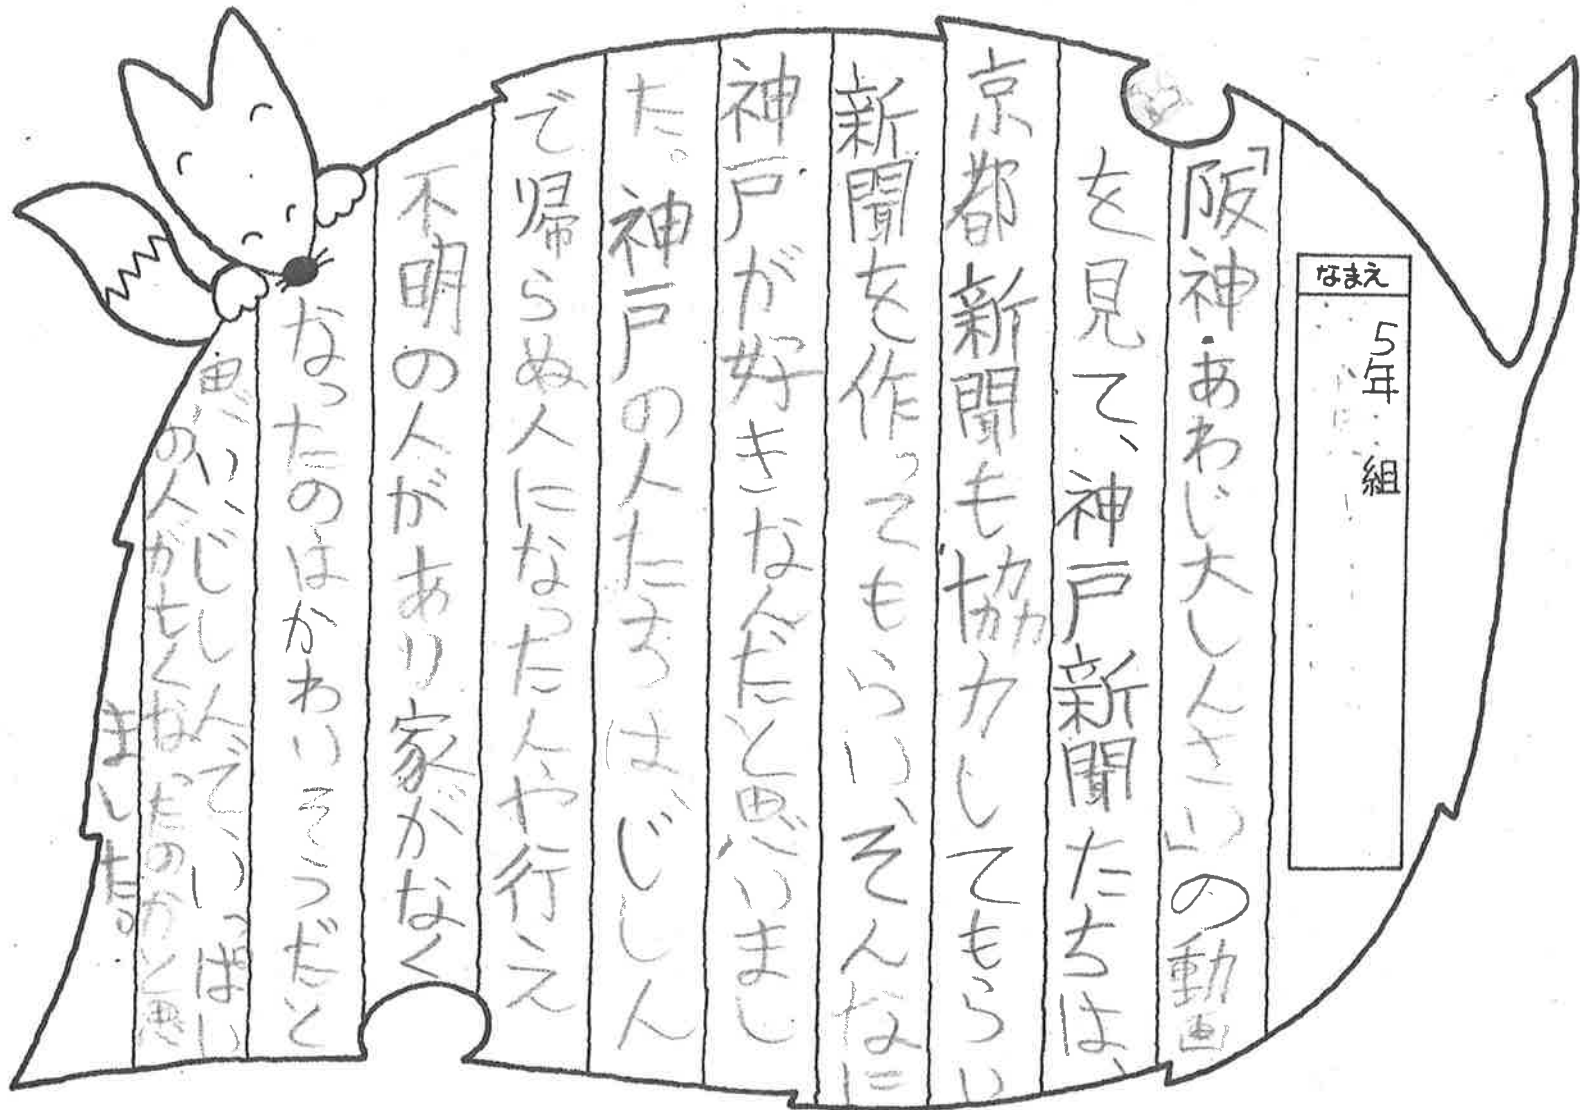 なまえ
5年 組
「阪神・あわじ大しんさい」の動画
を見て、神戸新聞たちは、
京都新聞も協力してもらい
新聞を作ってもらい、そんなに
神戸が好きなんだと思いまし
た。神戸の人たちは、じしん
で帰らぬ人になった人や行え
不明の人があり家がなく
なったのはかわいそうだと
思い、じしんで、いっぱい
の人が亡くなったのかと思
ました。